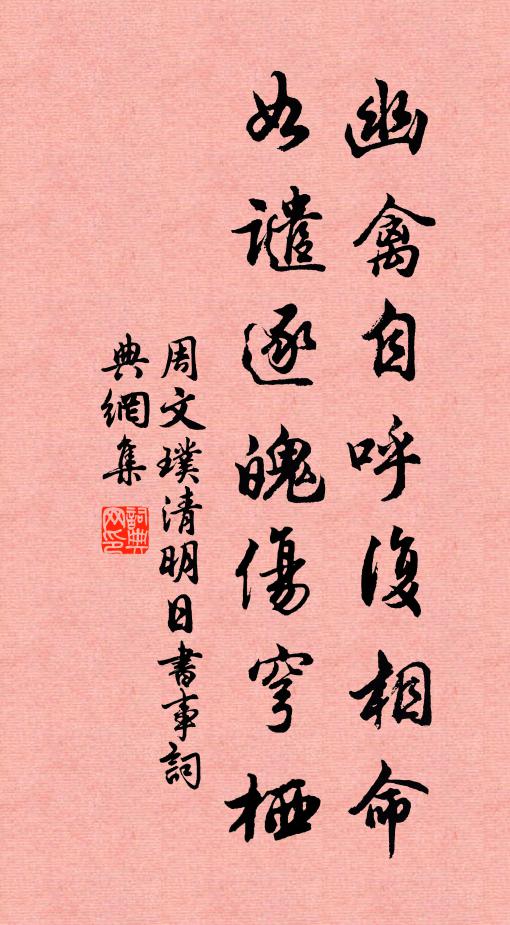 幽禽自呼復相命
如譴逐魄傷穹栖
周文璞清明日書事詞
典網集
詞典網印